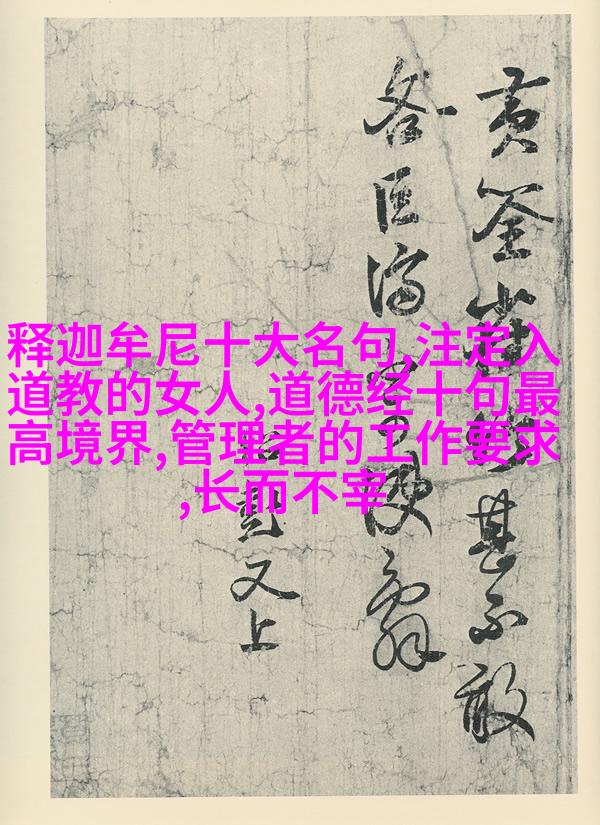 释迦牟尼十大名句,注定入
道教的女人,道德经十句最
高境界,管理者的工作要求
,长而不宰
黄筌甚不敢
又上